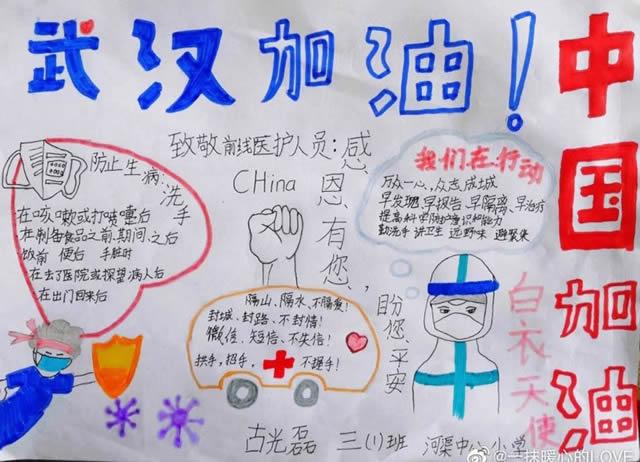 武汉加油！
中国加油
致敬前线医护人员：
感恩有您，
盼您平安
CHina
防止生病：洗手
在咳嗽或打喷嚏后
在制备食品之前、期间、之后
饭前 便后 手脏时
在去了医院或探望病人后
在出门回来后
我们在行动
万众一心，众志成城
早发现、早报告、早隔离、早治疗
提高科学防护意识和能力
勤洗手 讲卫生 远野味 避聚集
隔山、隔水、不隔爱！
封城、封路、不封情！
微信、短信、不失信！
拱手，招手， 不握手！
白衣天使
古光磊 三(1)班 河渠中心小学
@一抹暖心的LOVE